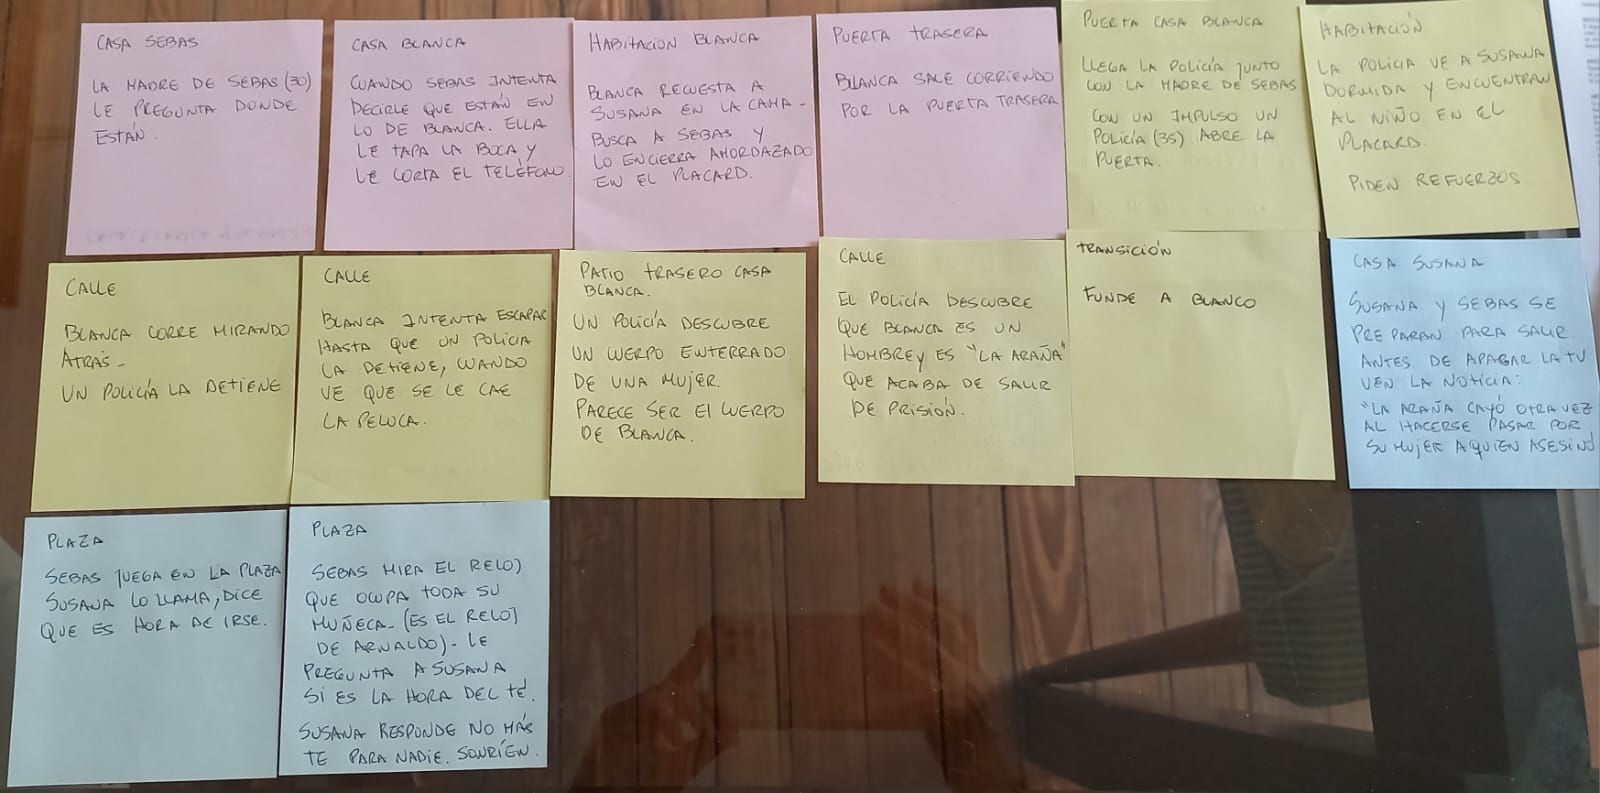 CASA SEBAS
LA MADRE DE SEBAS (30)
LE PREGUNTA DONDE
ESTÁN.
CASA BLANCA
CUANDO SEBAS INTENTA
DECIRLE QUE ESTÁN EN
LO DE BLANCA. ELLA
LE TAPA LA BOCA Y
LE CORTA EL TELÉFONO.
HABITACION BLANCA
BLANCA RECUESTA A
SUSANA EN LA CAMA-
BUSCA A SEBAS Y
LO ENCIERRA AMORDAZADO
EN EL PLACARD.
PUERTA TRASERA
BLANCA SALE CORRIENDO
POR LA PUERTA TRASERA
PUERTA CASA BLANCA
LLEGA LA POLICÍA JUNTO
CON LA MADRE DE SEBAS
CON UN IMPULSO UN
POLICÍA (35) ABRE LA
PUERTA.
HABITACIÓN
LA POLICIA VE A SUSANA
DORMIDA Y ENCUENTRAN
AL NIÑO EN EL
PLACARD.
PIDEN REFUERZOS
CALLE
BLANCA CORRE MIRANDO
ATRÁS-
UN POLICÍA LA DETIENE
CALLE
BLANCA INTENTA ESCAPAR
HASTA QUE UN POLICIA
LA DETIENE, CUANDO
VE QUE SE LE CAE
LA PELUCA.
PATIO TRASERO CASA
BLANCA.
UN POLICÍA DESCUBRE
UN CUERPO ENTERRADO
DE UNA MUJER.
PARECE SER El CUERPO
DE BLANCA.
CALLE
EL POLICÍA DESCUBRE
QUE BLANCA ES UN
HOMBRE Y ES "LA ARAÑA"
QUE ACABA DE SALIR
DE PRISIÓN.
TRANSICIÓN
FUNDE A BLANCO
CASA SUSANA
SUSANA Y SEBAS SE
PREPARAN PARA SALIR.
ANTES DE APAGAR LA TV
VEN LA NOTICIA:
"LA ARAÑA CAYÓ OTRA VEZ
AL HACERSE PASAR POR
SU MUJER A QUIEN ASESINÓ
PLAZA
SEBAS JUEGA EN LA PLAZA
SUSANA LO LLAMA, DICE
QUE ES HORA DE IRSE.
PLAZA
SEBAS MIRA EL RELOJ
QUE OCUPA TODA SU
MUÑECA- (ES EL RELOJ
DE ARNALDO)- LE
PREGUNTA A SUSANA
SI ES LA HORA DEL TÉ.
SUSANA RESPONDE NO MÁS
TE PARA NADIE. SONRÍEN.